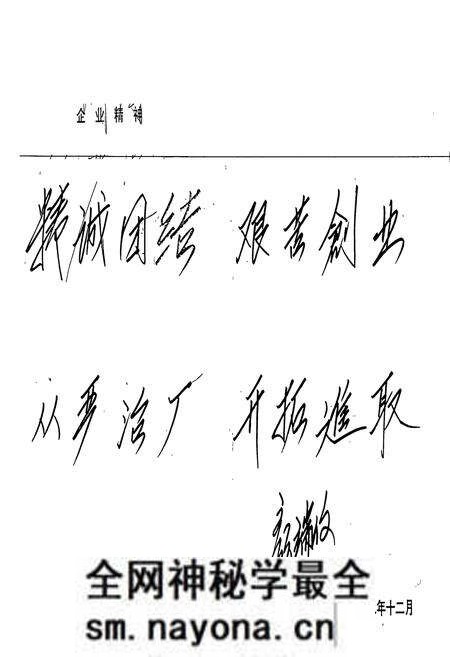 企业精神
精诚团结 艰苦创业
从严治厂 开拓進取
全网神秘学最全
年十二月
sm.nayona.cn